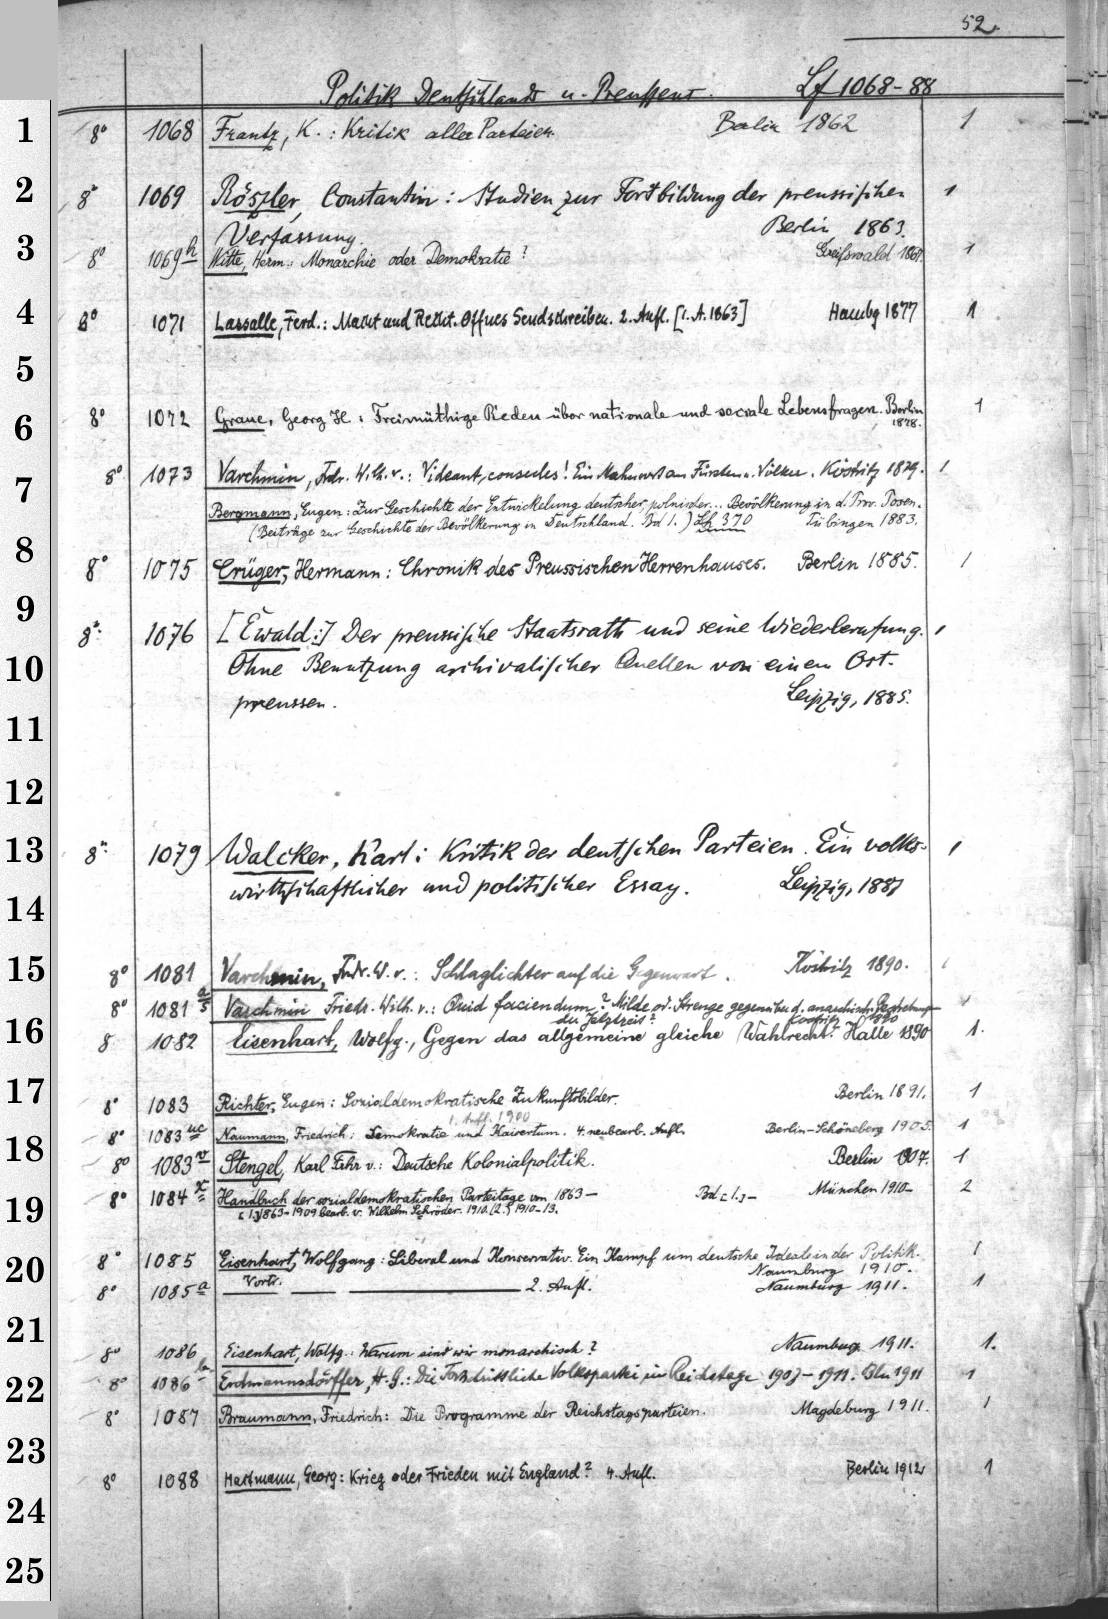 52.
Politik Deutschlands u. Preussens. Lf 1068-88
1 8° 1068 Frantz, K.: Kritik aller Parteien. Berlin 1862 1
2 8° 1069 Röszler, Constantin: Studien zur Fortbildung der preussischen 1
Verfassung. Berlin 1863.
3 8° 1069h Witte, Herm.: Monarchie oder Demokratie? Greifswald 1 
4 8° 1071 Lassalle, Ferd.: Macht und Recht. Offnes Sendschreiben. 2. Aufl. [1. A. 1863] Hambg 1877 1
5
6 8° 1072 Graue, Georg H.: Freimüthige Reden über nationale und sociale Lebensfragen. Berlin 1878. 1
7 8° 1073 Varchmin, Frdr. Wilh. v.: Videant, consules! Ein Mahnwort an Fürsten u. Völker. Köstritz 1879. 1
Bergmann, Eugen: Zur Geschichte der Entwickelung deutscher, polnischer... Bevölkerung in d. Prov. Posen.
(Beiträge zur Geschichte der Bevölkerung in Deutschland. Bd 1.) 370 Tübingen 1883.
8 8° 1075 Crüger, Hermann: Chronik des Preussischen Herrenhauses. Berlin 1885. 1
9 8° 1076 [Ewald:] Der preussische Staatsrath und seine Wiederberufung. 1
10 Ohne Benutzung archivalischer Quellen von einem Ost-
preussen. Leipzig, 1885.
11
12
13 8° 1079 Walcker, Karl: Kritik der deutschen Parteien. Ein volks- 1
14 wirthschaftlicher und politischer Essay. Leipzig, 1887
15 8° 1081 Varchmin, Frdr. W. v.: Schlaglichter auf die Gegenwart. Köstritz 1890. 1
8° 1081 Varchmin Friedr. Wilh. v.: Quid faciendum? Milde od. Strenge gegenüber d. anarchist. Bestrebungen
der Jetztzeit? Köstritz 1890 1
16 8 1082 Eisenhart, Wolfg., Gegen das allgemeine gleiche Wahlrecht. Halle 1890 1.
17 8° 1083 Richter, Eugen: Sozialdemokratische Zukunftsbilder. Berlin 1891. 1
1. Aufl. 1900
8° 1083uc Naumann, Friedrich: Demokratie und Kaisertum. 4. neubearb. Aufl. Berlin-Schöneberg 1905. 1
18 8° 1083v Stengel, Karl Frhr v.: Deutsche Kolonialpolitik. Berlin 1907. 1
19 8° 1084x Handbuch der sozialdemokratischen Parteitage von 1863– Bd [1.]– München 1910– 2
[1.] 1863-1909 bearb. v. Wilhelm Schröder. 1910. (2.) 1910-13.
20 8° 1085 Eisenhart, Wolfgang: Liberal und Konservativ. Ein Kampf um deutsche Ideale in der Politik. 1
Vortr. Naumburg 1910.
8° 1085a — — — 2. Aufl. Naumburg 1911. 1
21 8° 1086 Eisenhart, Wolfg.: Warum sind wir monarchisch? Naumburg 1911. 1.
22 8° 1086 Erdmannsdörffer, H. G.: Die Fortschrittliche Volkspartei im Reichstage 1907–1911. Bln 1911 1
8° 1087 Braumann, Friedrich: Die Programme der Reichstagsparteien. Magdeburg 1911. 1
23 8° 1088 Hartmann, Georg: Krieg oder Frieden mit England? 4. Aufl. Berlin 1912 1
24
25